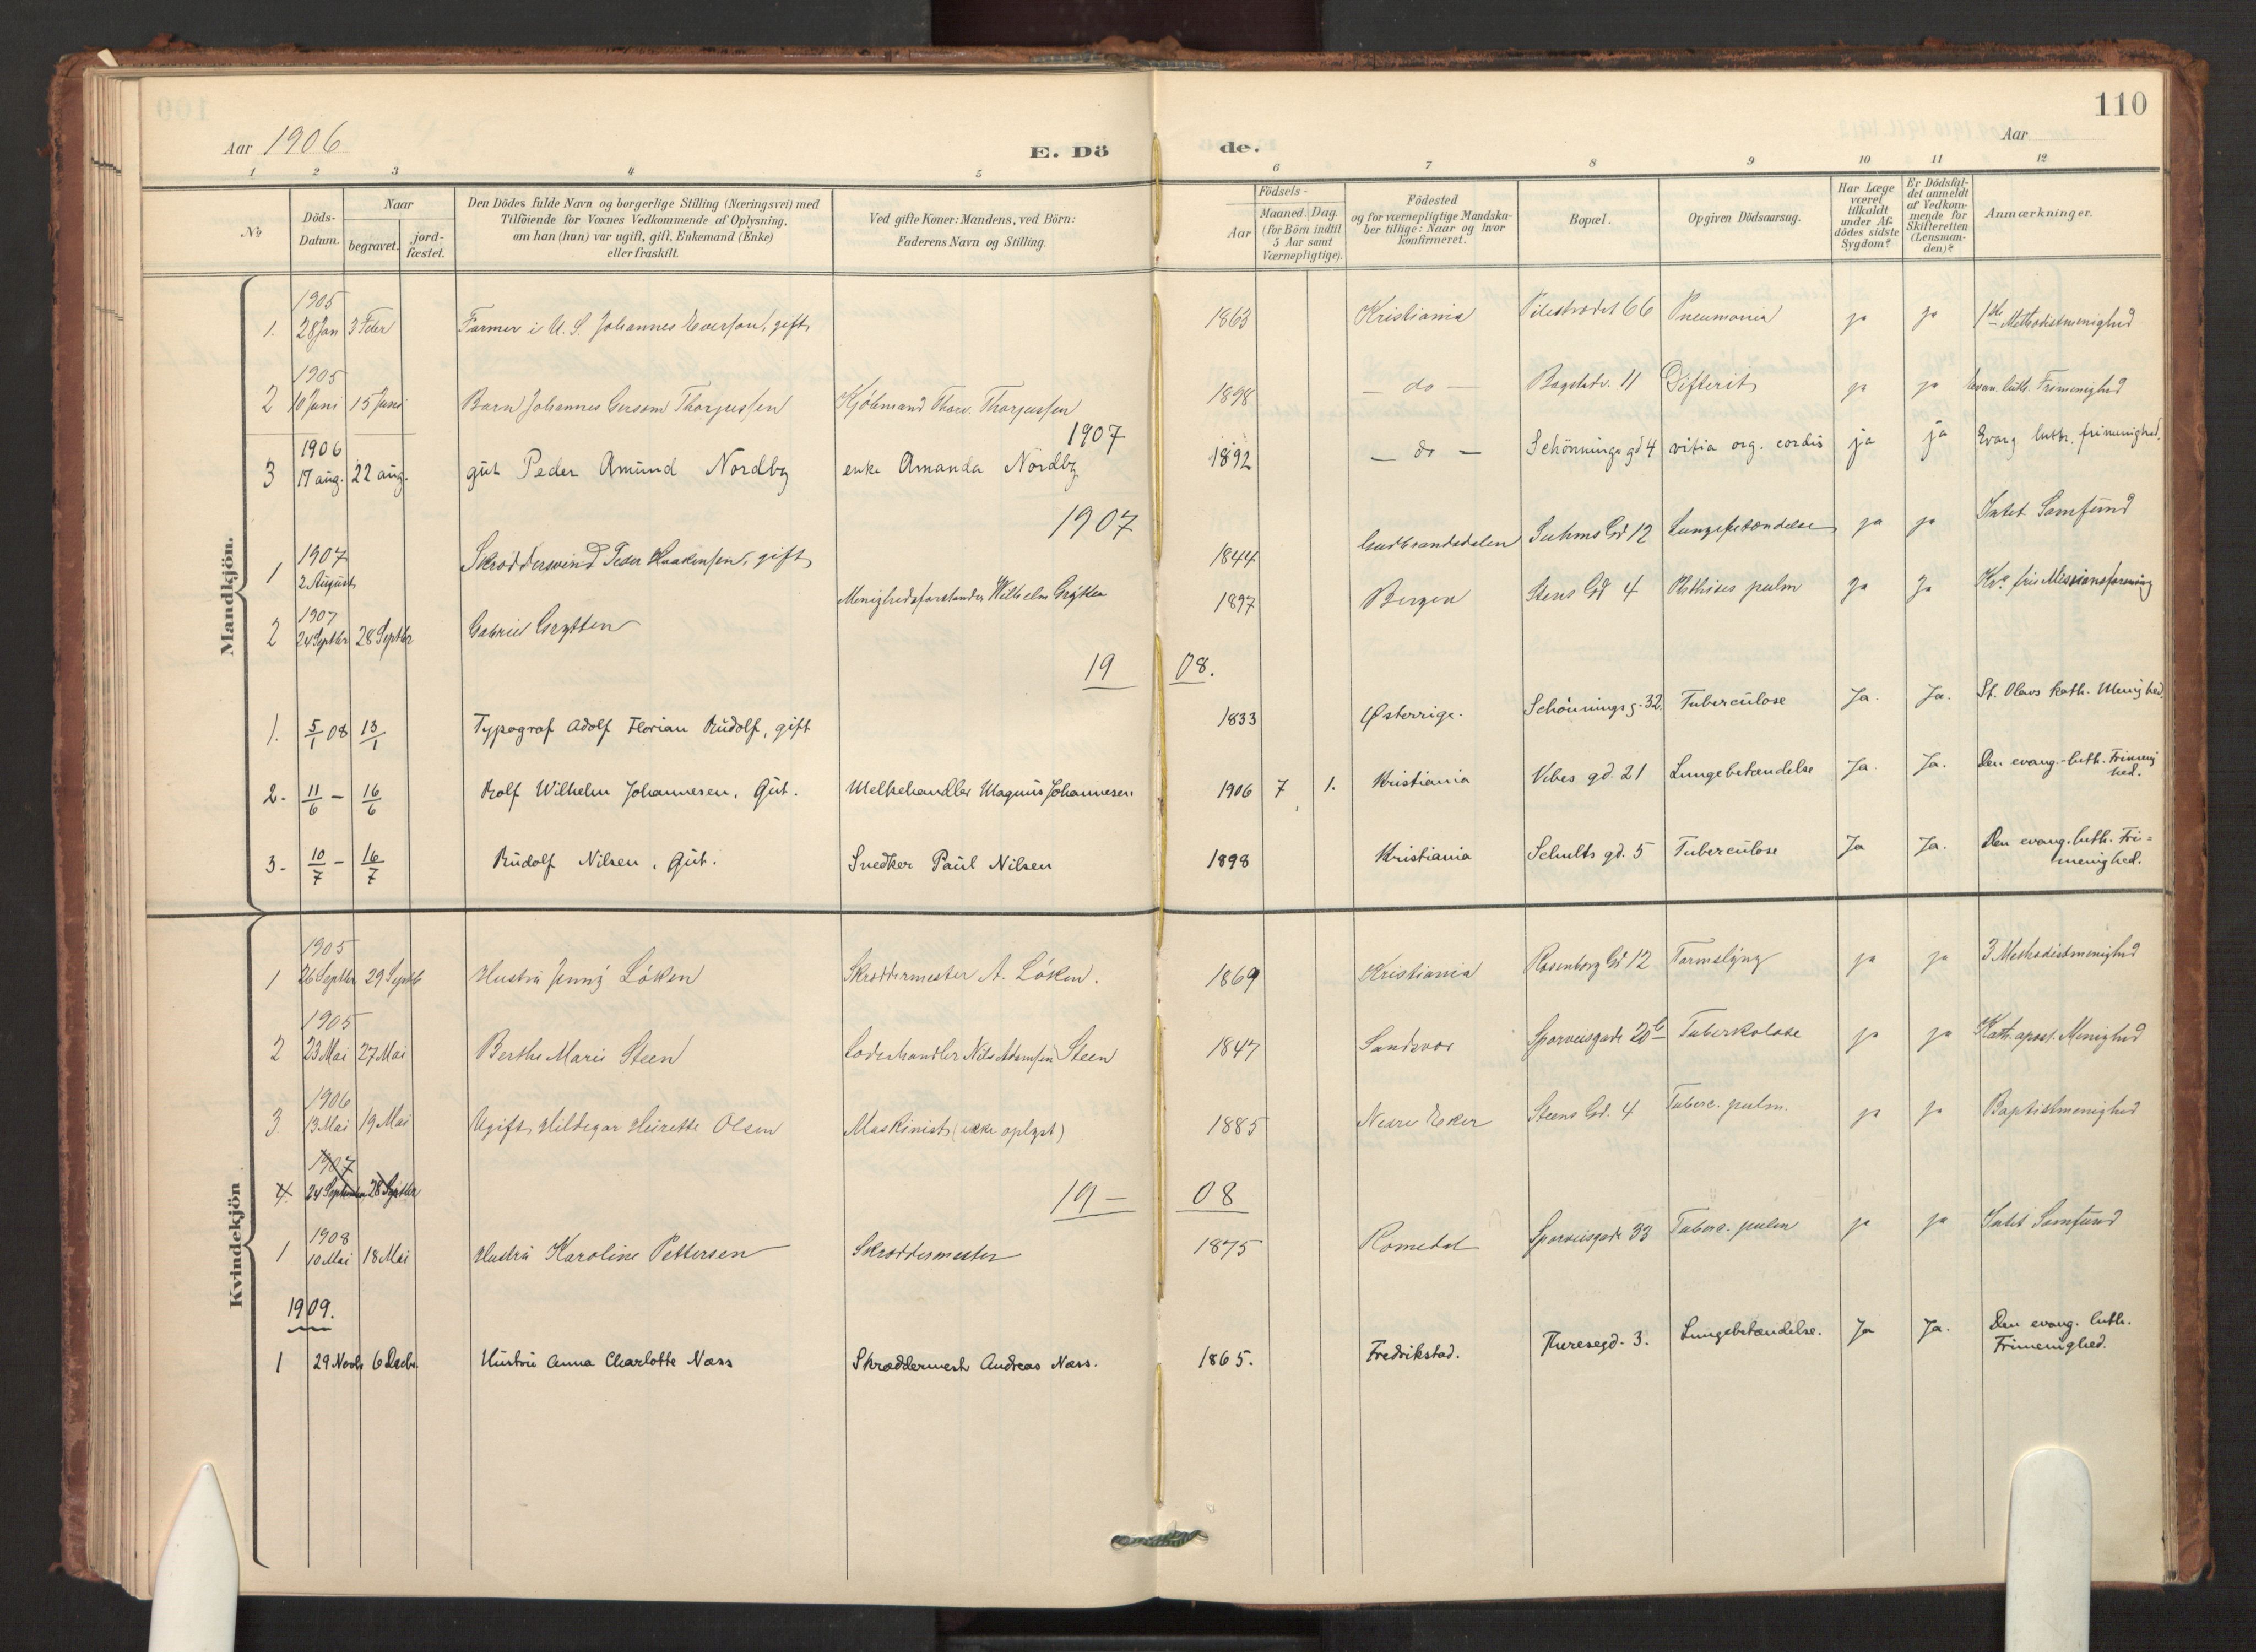 110
Aar 1906
E. Dö
de.
Aar
1 2 3 4 5 6 7 8 9 10 11 12
No
Döds-Datum.
Naar
begravet.
jord-fæstet.
Den Dödes fulde Navn og borgerlige Stilling (Næringsvei) med
Tilföiende for Voxnes Vedkommende af Oplysning,
om han (hun) var ugift, gift, Enkemand (Enke)
eller fraskilt.
Ved gifte Koner: Mandens, ved Börn:
Faderens Navn og Stilling.
Födsels-
Aar
Maaned. Dag.
(for Börn indtil
5 Aar samt
Værnepligtige).
Födested
og for værnepligtige Mandska-
ber tillige: Naar og hvor
konfirmeret.
Bopæl.
Opgiven Dödsaarsag.
Har Læge
været
tilkaldt
under Af-
dödes sidste
Sygdom?
Er Dödsfal-
det anmeldt
af Vedkom-
mende for
Skifteretten
(Lensman-
den)?
Anmærkninger.
Mandkjön.
1905
1. 28 Jan 3 Febr Farmer i U.S. Johannes Everson, gift 1863 Kristiania Pilestrædet 66 Pneumonia ja ja 1ste Methodistmenighed
1905
2 10 Juni 15 Juni Barn Johannes Gersom Thorjussen Kjöbmand Thorv. Thorjussen 1898 — do — Bogstadv. 11 Difterit ja ja Evan. luth. Frimenighed
1907
1906
3 17 aug. 22 aug. gut Peder Amund Nordby enke Amanda Nordby 1892 — do — Schönnings gd 4 vitia org. cordis ja ja Evang. luth. frimenighed.
1907
1907
1 2 August Skræddersvend Peder Haakensen, gift 1844 Gudbrandsdalen Suhms Gd 12 Lungebetændelse ja ja Intet Samfund
1907
2 24 Septbr 28 Septbr Gabriel Grytten Menighedsforstander Wilhelm Grytten 1897 Bergen Stens Gd 4 Phthises pulm Ja Ja Kra. frie Missionsforening
19 08.
1. 5/1 08 13/1 Typograf Adolf Florian Rudolf, gift 1833 Østerrige. Schönnings g. 32. Tuberculose Ja. Ja. St. Olavs kath. Menighed
2. 11/6 — 16/6 Rolf Wilhelm Johannesen. Gut. Melkehandler Magnus Johannesen 1906 7 1. Kristiania Vibes gd. 21 Lungebetændelse Ja. Ja. Den evang.-luth. Frimenig
hed.
3. 10/7 — 16/7 Rudolf Nilsen. Gut. Snedker Paul Nilsen 1898 Kristiania Schults gd. 5 Tuberculose Ja Ja. Den evang. luth. Fri=
menighed.
Kvindekjön
1905
1 26 Septbr 29 Septb Hustru Jenny Löken Skræddermester A. Löken. 1869 Kristiania Rosenborg Gd 12 Tarmslyng ja ja 3 Methodistmenighed
1905
2 23 Mai 27 Mai Berthe Marie Steen Steen 1847 Sporveisgade 20b Tuberkolose ja ja Kath. apost. Menighed
1906
3 13 Mai 19 Mai Ugift Hildegar Heirette Olsen Maskinist (ikke oplyst) 1885 Nedre Eker Steens Gd. 4 Tuberc. pulm. ja ja Baptistmenighed
1907
4 24 September 28 Septbr
19 — 08
1908
1 10 Mai 18 Mai Hustru Karoline Pettersen Skræddermester 1875 Romedal Sporveisgade 33 Tuberc. pulm ja ja Intet Samfund
1909.
1 29 Novb 6 Decbr. Hustru Anna Charlotte Næss Skræddermest Andreas Næss. 1865. Fredrikstad. Theresegd. 3. Lungebetændelse. Ja Ja. Den evang. luth.
Frimenighed.